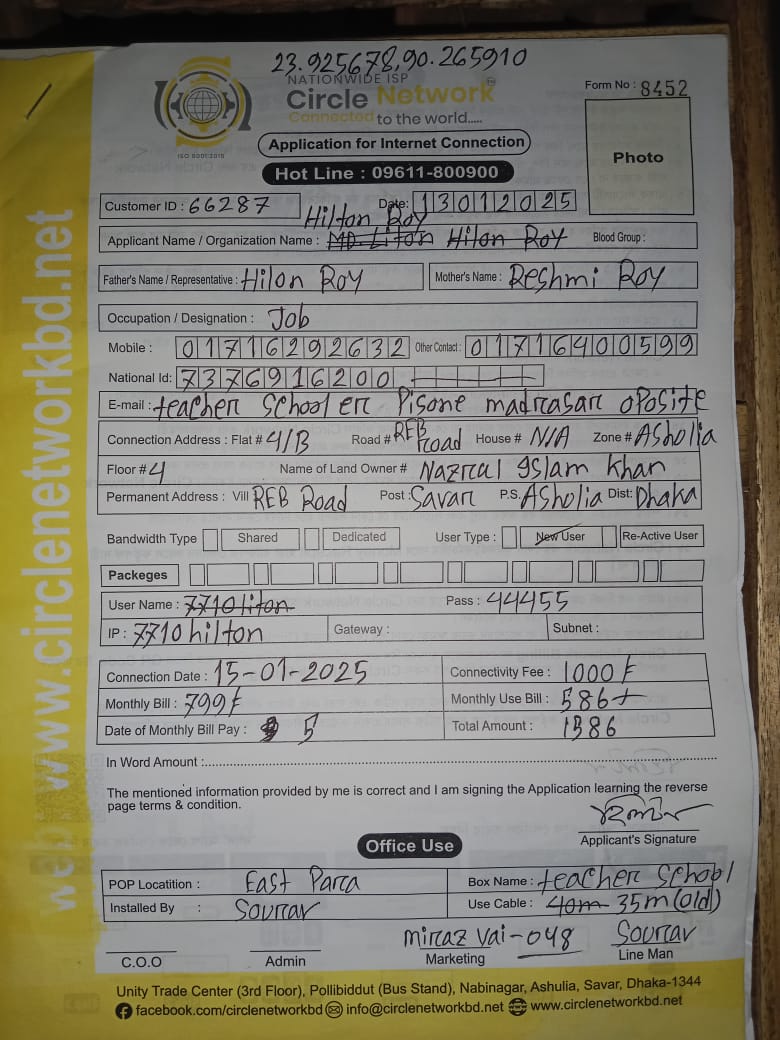 23.925678,90.265910
NATIONWIDE ISP
Circle Network
Connected to the world.....
ISO 9001:2015
Form No : 8452
Application for Internet Connection
Hot Line : 09611-800900
Photo
Customer ID : 66287 Date: 13012025
Hilton Roy
Applicant Name / Organization Name : MD. Liton Hilon Roy Blood Group :
Father's Name / Representative : Hilon Roy Mother's Name : Reshmi Roy
Occupation / Designation : Job
Mobile : 01716292632 Other Contact : 01716400599
National Id: 7376916200
E-mail : teacher School er Pisone madrasar oposite
Connection Address : Flat # 4/B Road # REB Road House # N/A Zone # Asholia
Floor # 4 Name of Land Owner # Nazrul Islam Khan
Permanent Address : Vill REB Road Post : Savar P.S. Asholia Dist: Dhaka
Bandwidth Type Shared Dedicated User Type : New User Re-Active User
Packeges
User Name : 7710liton Pass : 44455
IP : 7710hilton Gateway : Subnet :
Connection Date : 15-01-2025 Connectivity Fee : 1000 ৳
Monthly Bill : 799৳ Monthly Use Bill : 586৳
Date of Monthly Bill Pay : 5 Total Amount : 1386
In Word Amount :
The mentioned information provided by me is correct and I am signing the Application learning the reverse
page terms & condition.
Applicant's Signature
Office Use
POP Locatition : East Para Box Name : teacher School
Installed By : Sourav Use Cable : 40m 35m (old)
miraz vai-048 Sourav
C.O.O Admin Marketing Line Man
Unity Trade Center (3rd Floor), Pollibiddut (Bus Stand), Nabinagar, Ashulia, Savar, Dhaka-1344
facebook.com/circlenetworkbd info@circlenetworkbd.net www.circlenetworkbd.net
web: www.circlenetworkbd.net